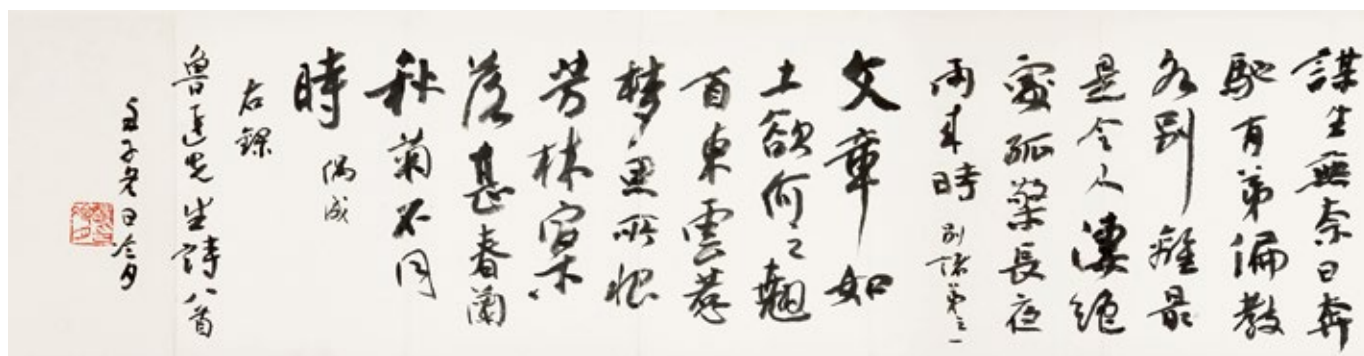 謀生無奈日奔
馳有弟偏教
各別離最
是令人凄絕
處孤檠長夜
雨來時 別諸弟之一
文章如
土欲何之翹
首東雲惹
夢思所恨
芳林寥
落甚春蘭
秋菊不同
時 偶成
右錄
魯迅先生詩八首